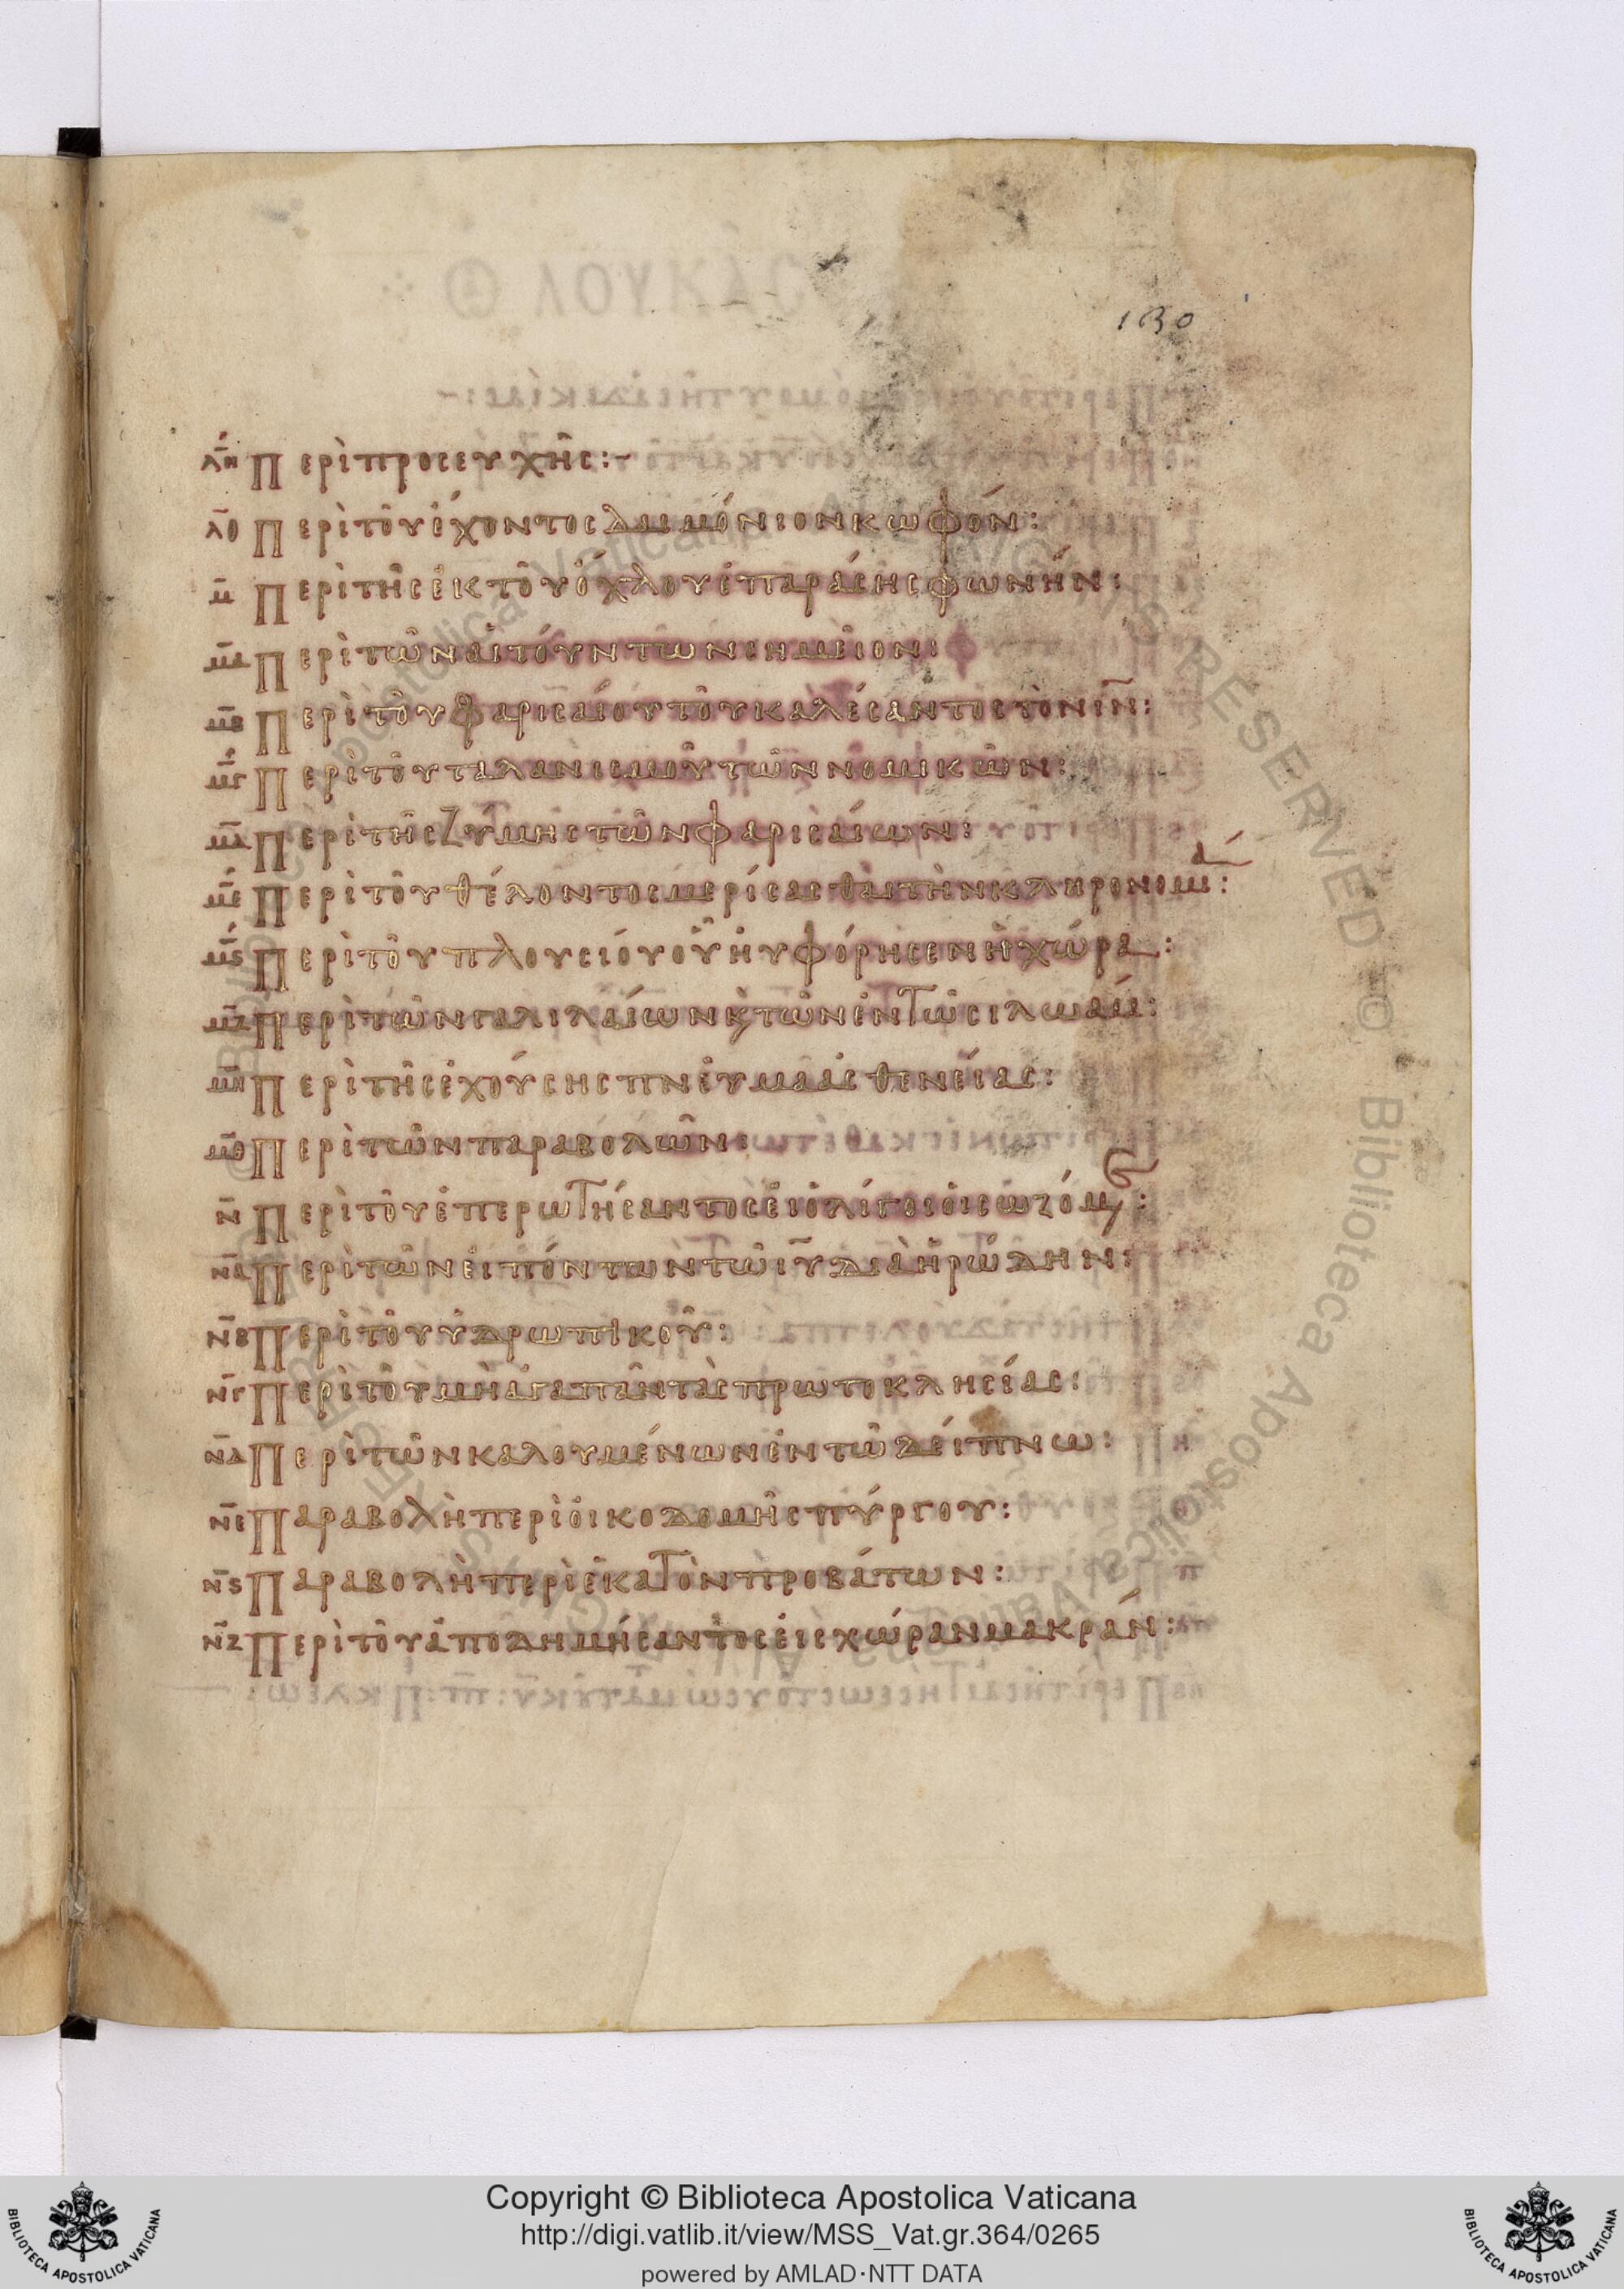 130
λη Περὶ προσευχῆς:-
λθ Περὶ τοῦ ἔχοντος δαιμόνιον κωφόν:
μ Περὶ τῆς ἐκ τοῦ ὄχλου ἐπαράσης φωνήν:
μα Περὶ τῶν αἰτούντων σημεῖον:
μβ Περὶ τοῦ φαρισαίου τοῦ καλέσαντος τὸν ιν:
μγ Περὶ τοῦ ταλανισμοῦ τῶν νομικῶν:
μδ Περὶ τῆς ζύμης τῶν φαρισαίων:
με Περὶ τοῦ θέλοντος μερίσασθαι τὴν κληρονομ:
μϛ Περὶ τοῦ πλουσίου οὗ ηὐφόρησεν ἡ χώρα:
μζ Περὶ τῶν γαλιλαίων κ τῶν ἐν τῶ σιλωάμ:
μη Περὶ τῆς ἐχούσης πνεῦμα ἀσθενείας:
μθ Περὶ τῶν παραβολῶν:
ν Περὶ τοῦ ἐπερωτήσαντος εἰ ὀλίγοι οἱ σωζόμ:
να Περὶ τῶν εἰπόντων τῶ ιυ διὰ ἡρώδην:
νβ Περὶ τοῦ ὑδρωπικοῦ:
νγ Περὶ τοῦ μὴ ἀγαπᾶν τὰς πρωτοκλησίας:
νδ Περὶ τῶν καλουμένων ἐν τῶ δείπνω:
νε Παραβολὴ περὶ οἰκοδομῆς πύργου:
νϛ Παραβολὴ περὶ ἑκατὸν προβάτων:
νζ Περὶ τοῦ ἀποδημήσαντος εἰς χώραν μακράν:
Copyright © Biblioteca Apostolica Vaticana
http://digi.vatlib.it/view/MSS_Vat.gr.364/0265
powered by AMLAD·NTT DATA
BIBLIOTECA APOSTOLICA VATICANA
BIBLIOTECA APOSTOLICA VATICANA